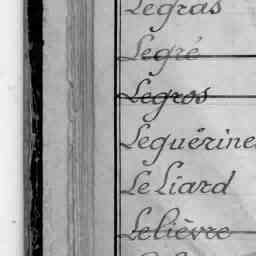 Legras
Legré
Legros
Leguérine
Le Liard
Lelièvre